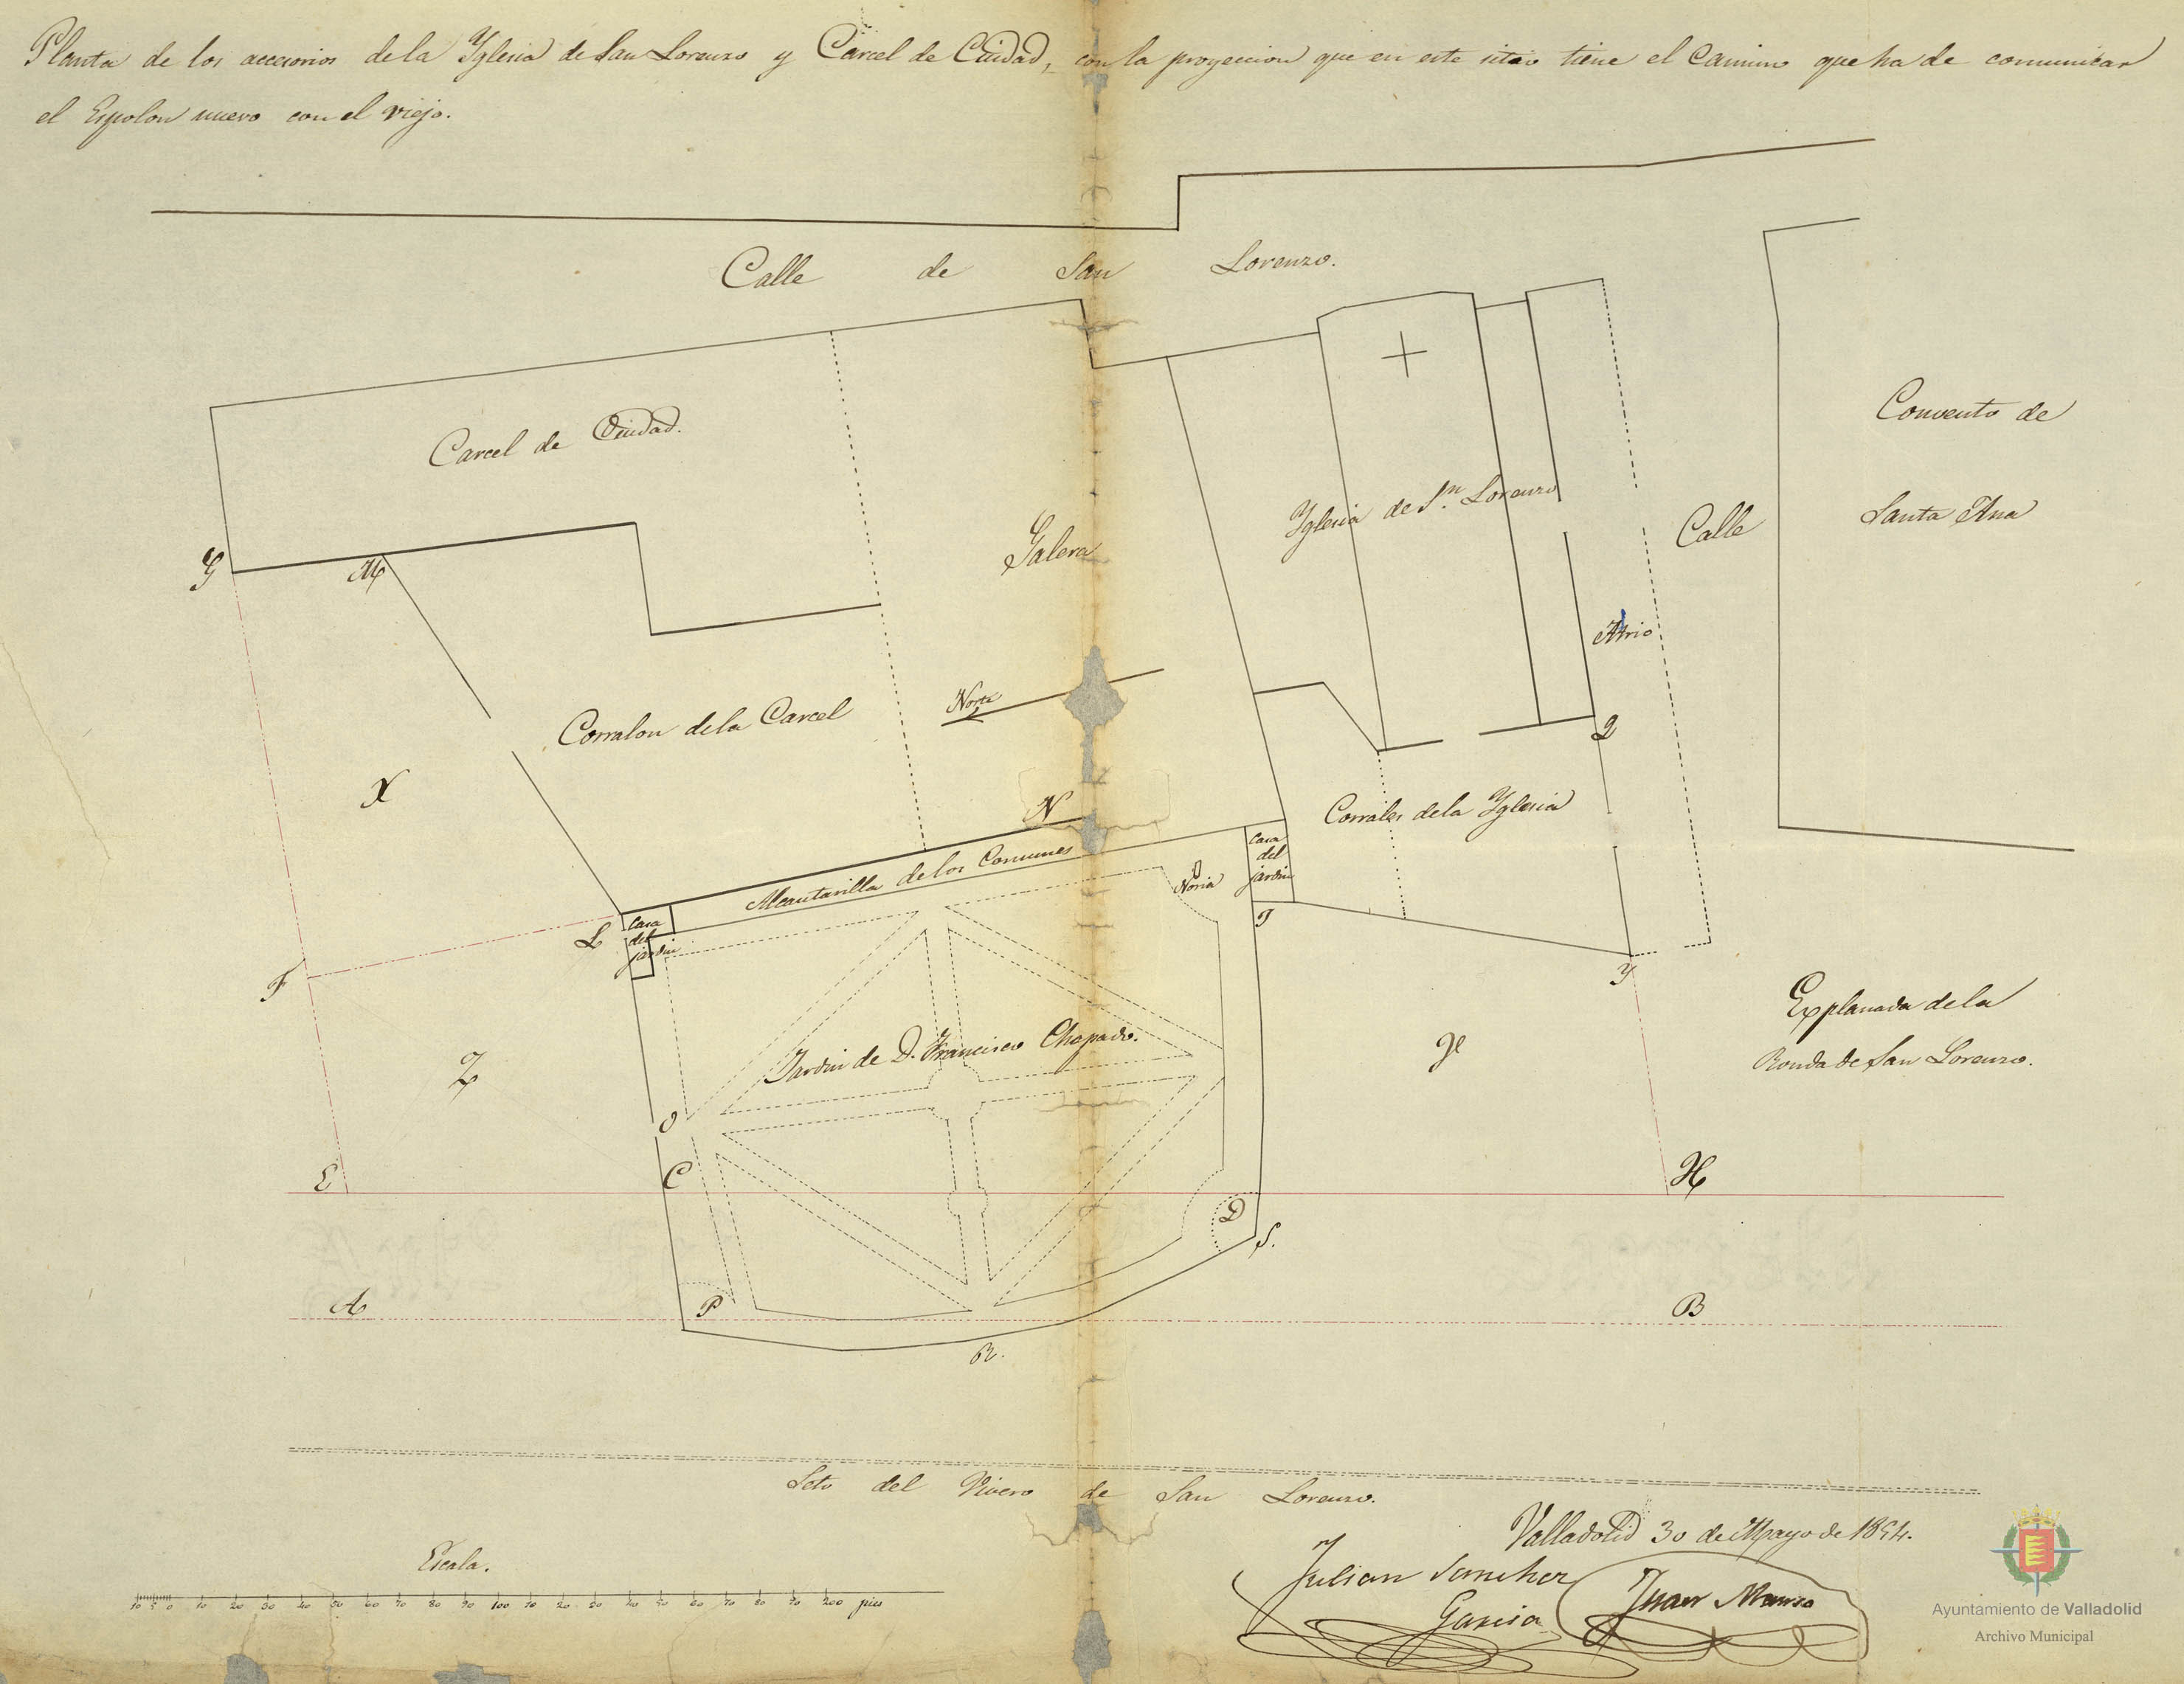 Planta de los accesorios de la Yglesia de San Lorenzo y Carcel de Ciudad, con la proyeccion que en este sitio tiene el Camino que ha de comunicar
el Espolon nuevo con el viejo.
Calle de San Lorenzo.
Carcel de Ciudad.
Convento de
Santa Ana
Yglesia de Sn. Lorenzo
Calle
Galera
G
M
Atrio
Norte
Corralon de la Carcel
Q
X
N
Corrales de la Yglesia
Alcantarilla de los Comunes
Casa
del
jardin
Noria
Casa
del
jardin
L
T
F
Y
Explanada de la
Ronda de San Lorenzo.
Jardin de D. Francisco Chapado.
Z
O
C
E
H
D
S.
A
P
B
R.
Seto del Vivero de San Lorenzo.
Valladolid 30 de Mayo de 1854.
Escala.
Julian Sanchez
Garcia
Juan Manso
10 5 0 10 20 30 40 50 60 70 80 90 100 10 20 30 40 50 60 70 80 90 200 pies
Ayuntamiento de Valladolid
Archivo Municipal